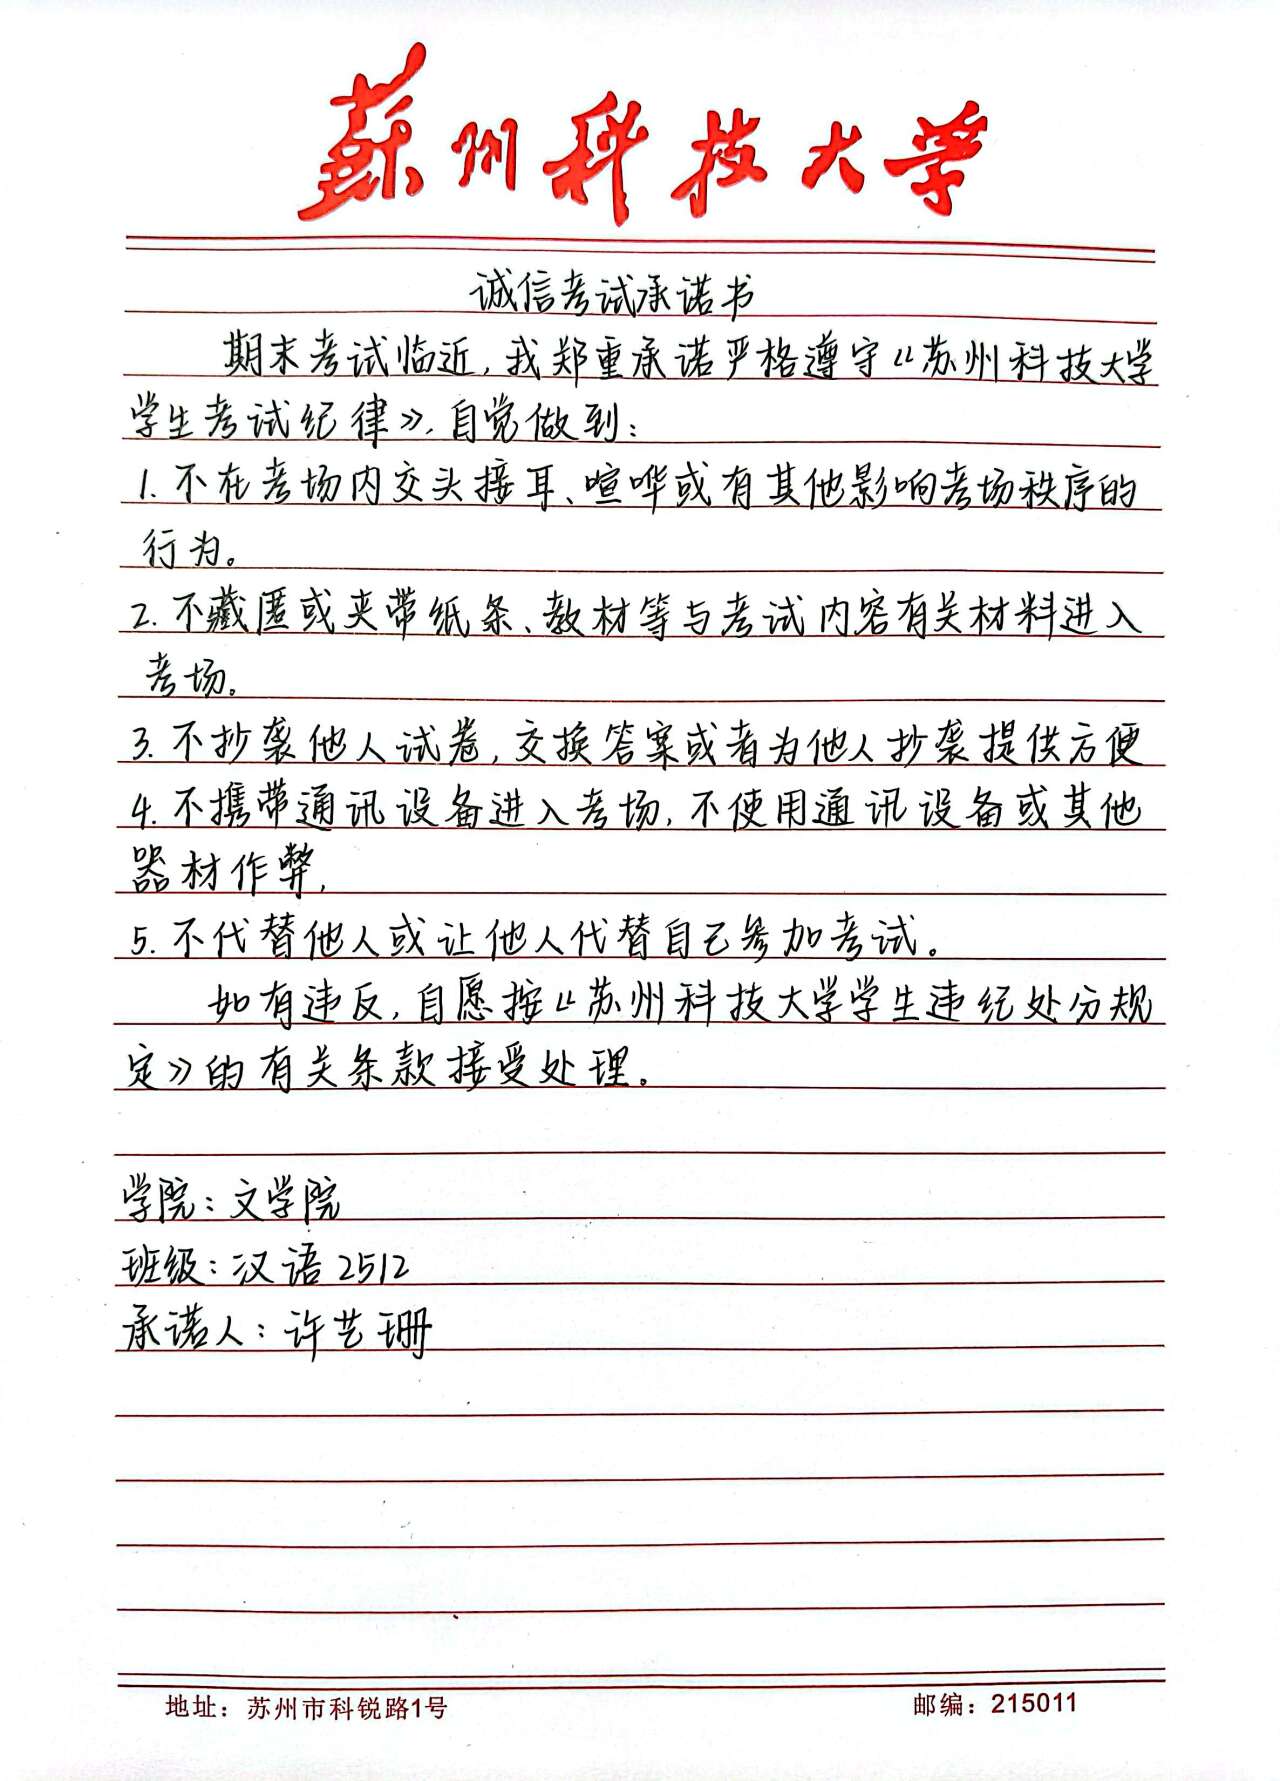 蘇州科技大学
诚信考试承诺书
期末考试临近,我郑重承诺严格遵守《苏州科技大学
学生考试纪律》,自觉做到:
1.不在考场内交头接耳、喧哗或有其他影响考场秩序的
行为。
2.不藏匿或夹带纸条、教材等与考试内容有关材料进入
考场。
3.不抄袭他人试卷,交换答案或者为他人抄袭提供方便
4.不携带通讯设备进入考场,不使用通讯设备或其他
器材作弊,
5.不代替他人或让他人代替自己参加考试。
如有违反,自愿按《苏州科技大学学生违纪处分规
定》的有关条款接受处理。
学院:文学院
班级:汉语2512
承诺人:许艺珊
地址:苏州市科锐路1号 邮编:215011